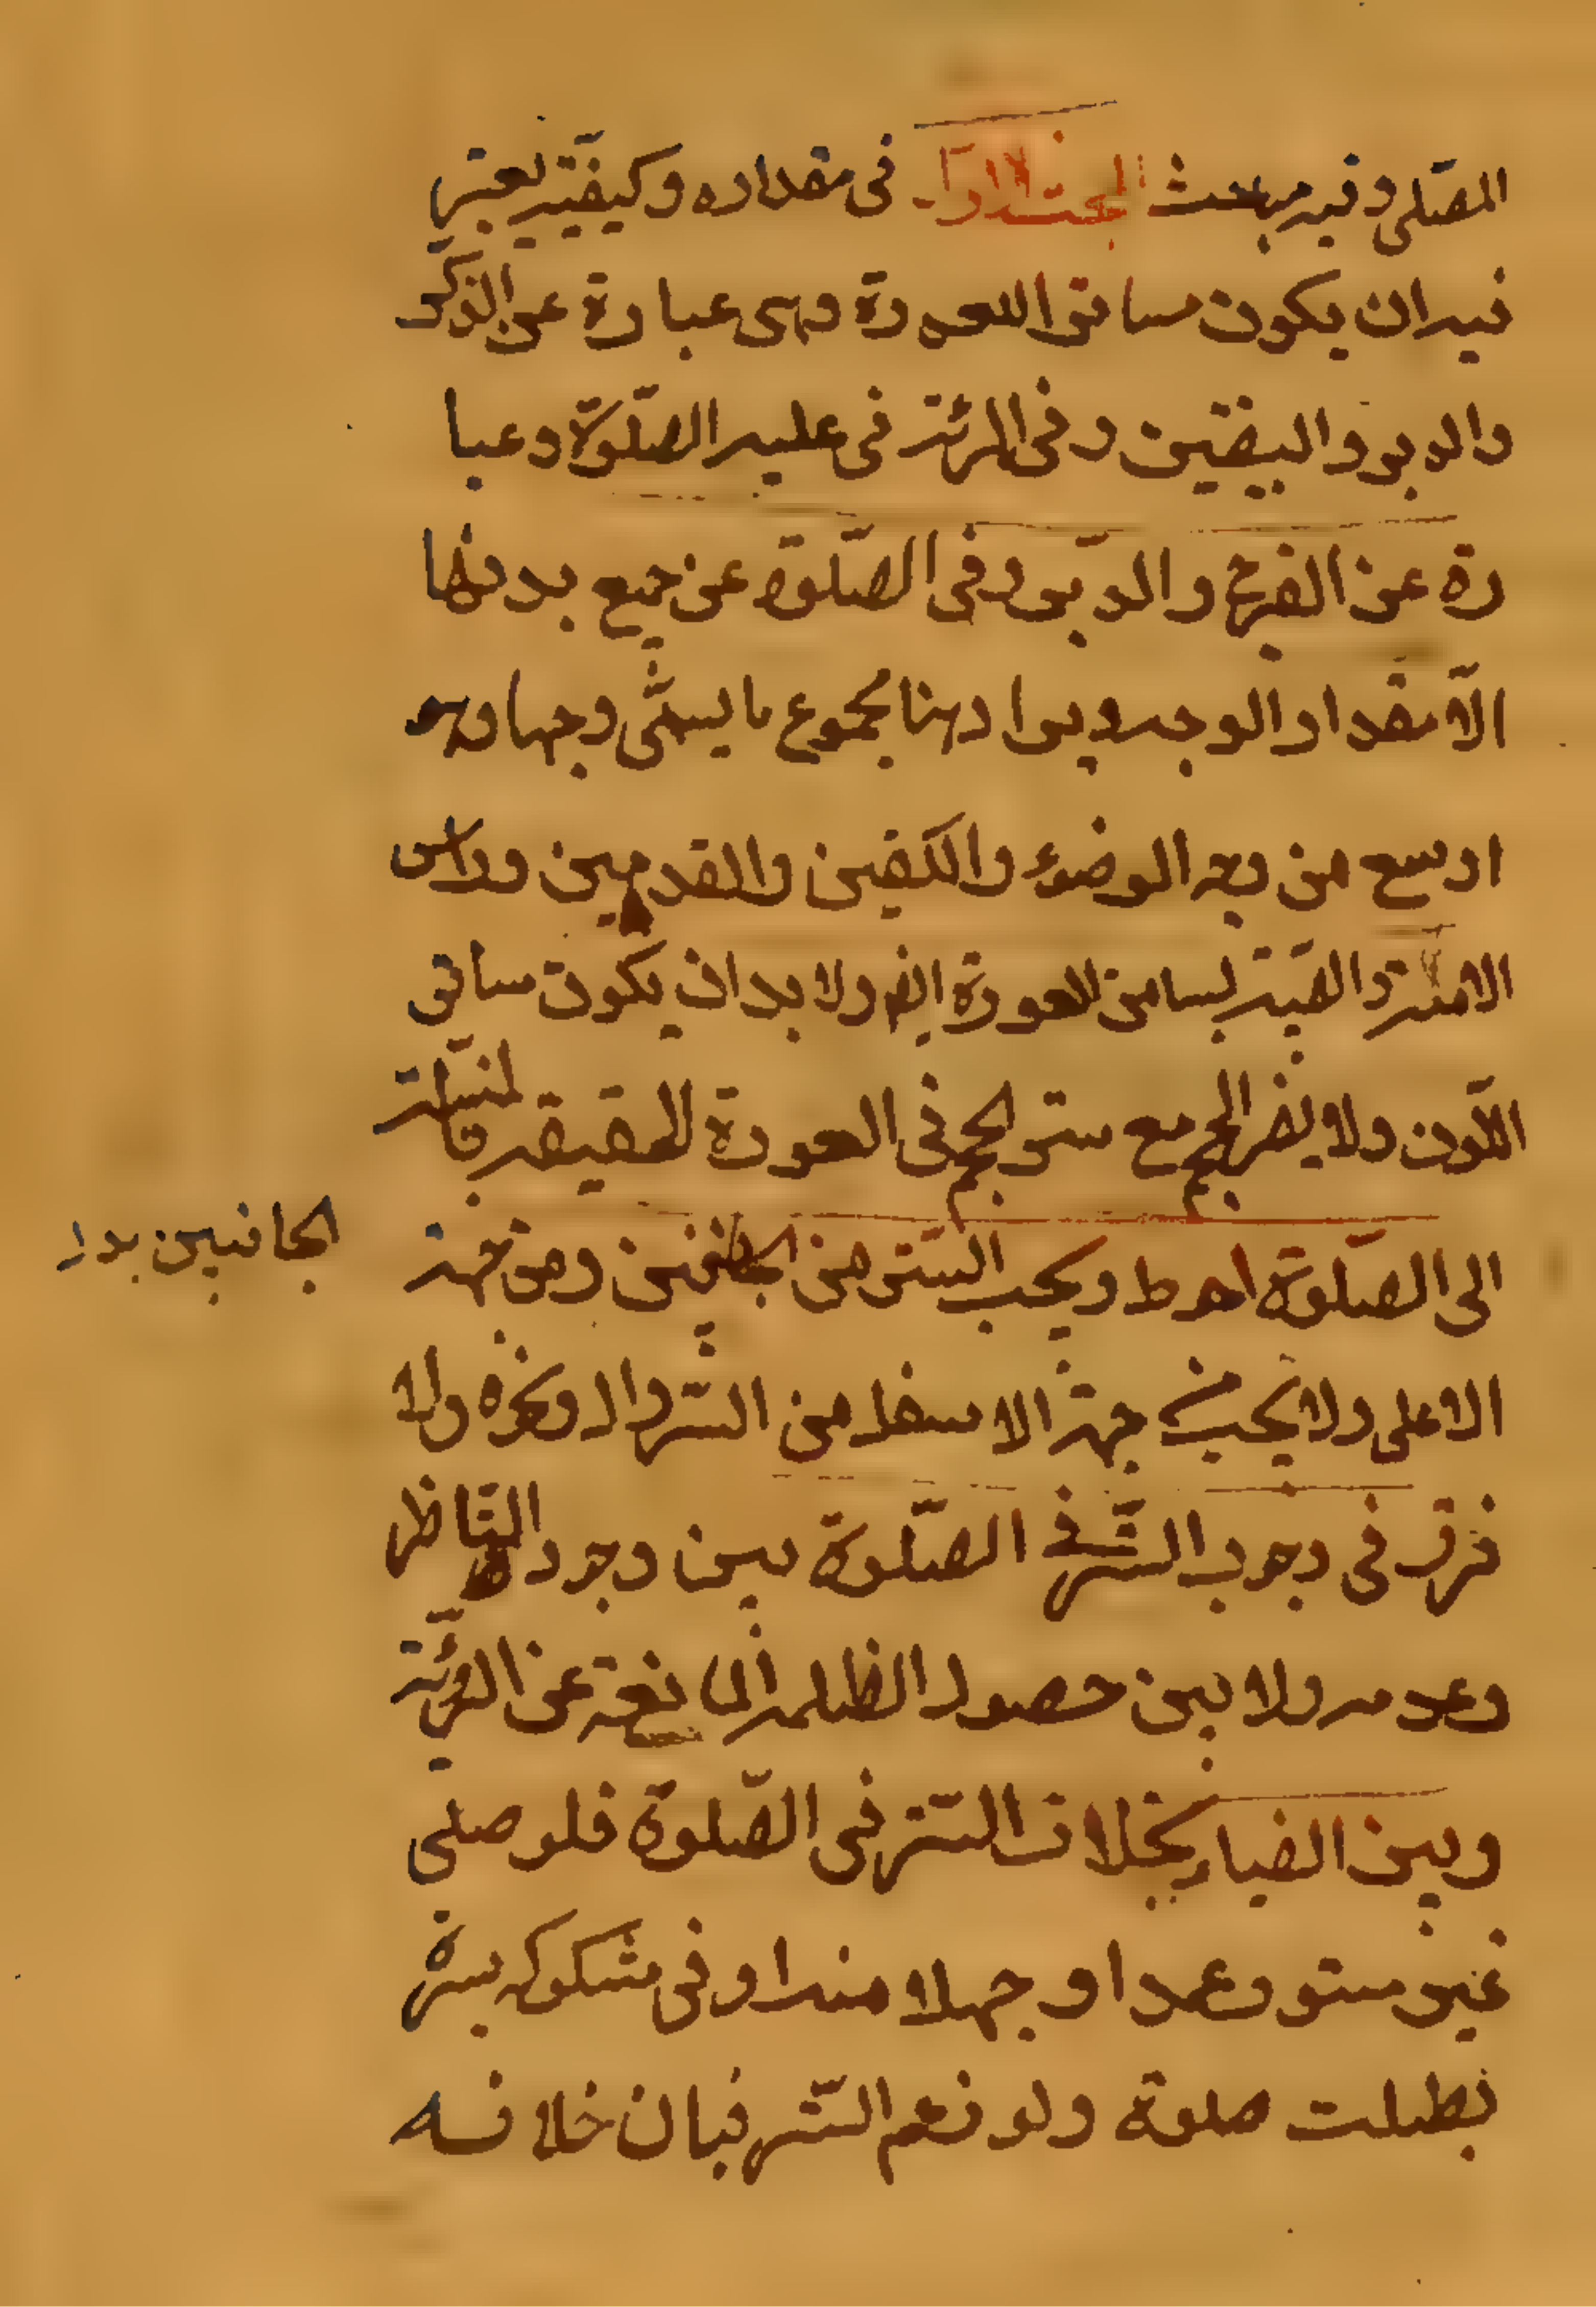 المصلى وفيه مباحث المبحث الاول فى مقداره وكيفيته يعتبر
فيه ان يكون ساتر العورة وهى عبارة عن الذكر
والدبر والبيضتين وفى المرئة فى غير الصلوة عبا
رة عن الفرج والدبر وفى الصلوة عن جميع بدنها
الا مقدار الوجه ويراد هنا مجموع ما يسمى وجها وهو
اوسع من وجه الوضوء والكفين والقدمين وراس
الامة والصبية ليسا من العورة ايضا ولا بد ان يكون ساتر
اللون ولا يضر الحجم مع ستر الحجم فى العورة الحقيقية
الى الصلوة احوط ويجب الستر من الجانبين ومن جهة
الجانبين بدل
الاعلى ولا يجب من جهة الاسفل من السروال ونحوه ولا
فرق فى وجوب الستر فى الصلوة بين وجود الناظر
وعدمه ولا بين حصول الظلمة المانعة عن الرؤية
وبين الضياء بخلاف الستر فى الصلوة فلو صلى
غير مستور عمدا او جهلا منه او فى مشكوك ستره
بطلت صلوته ولو زعم الستر فبان خلافه